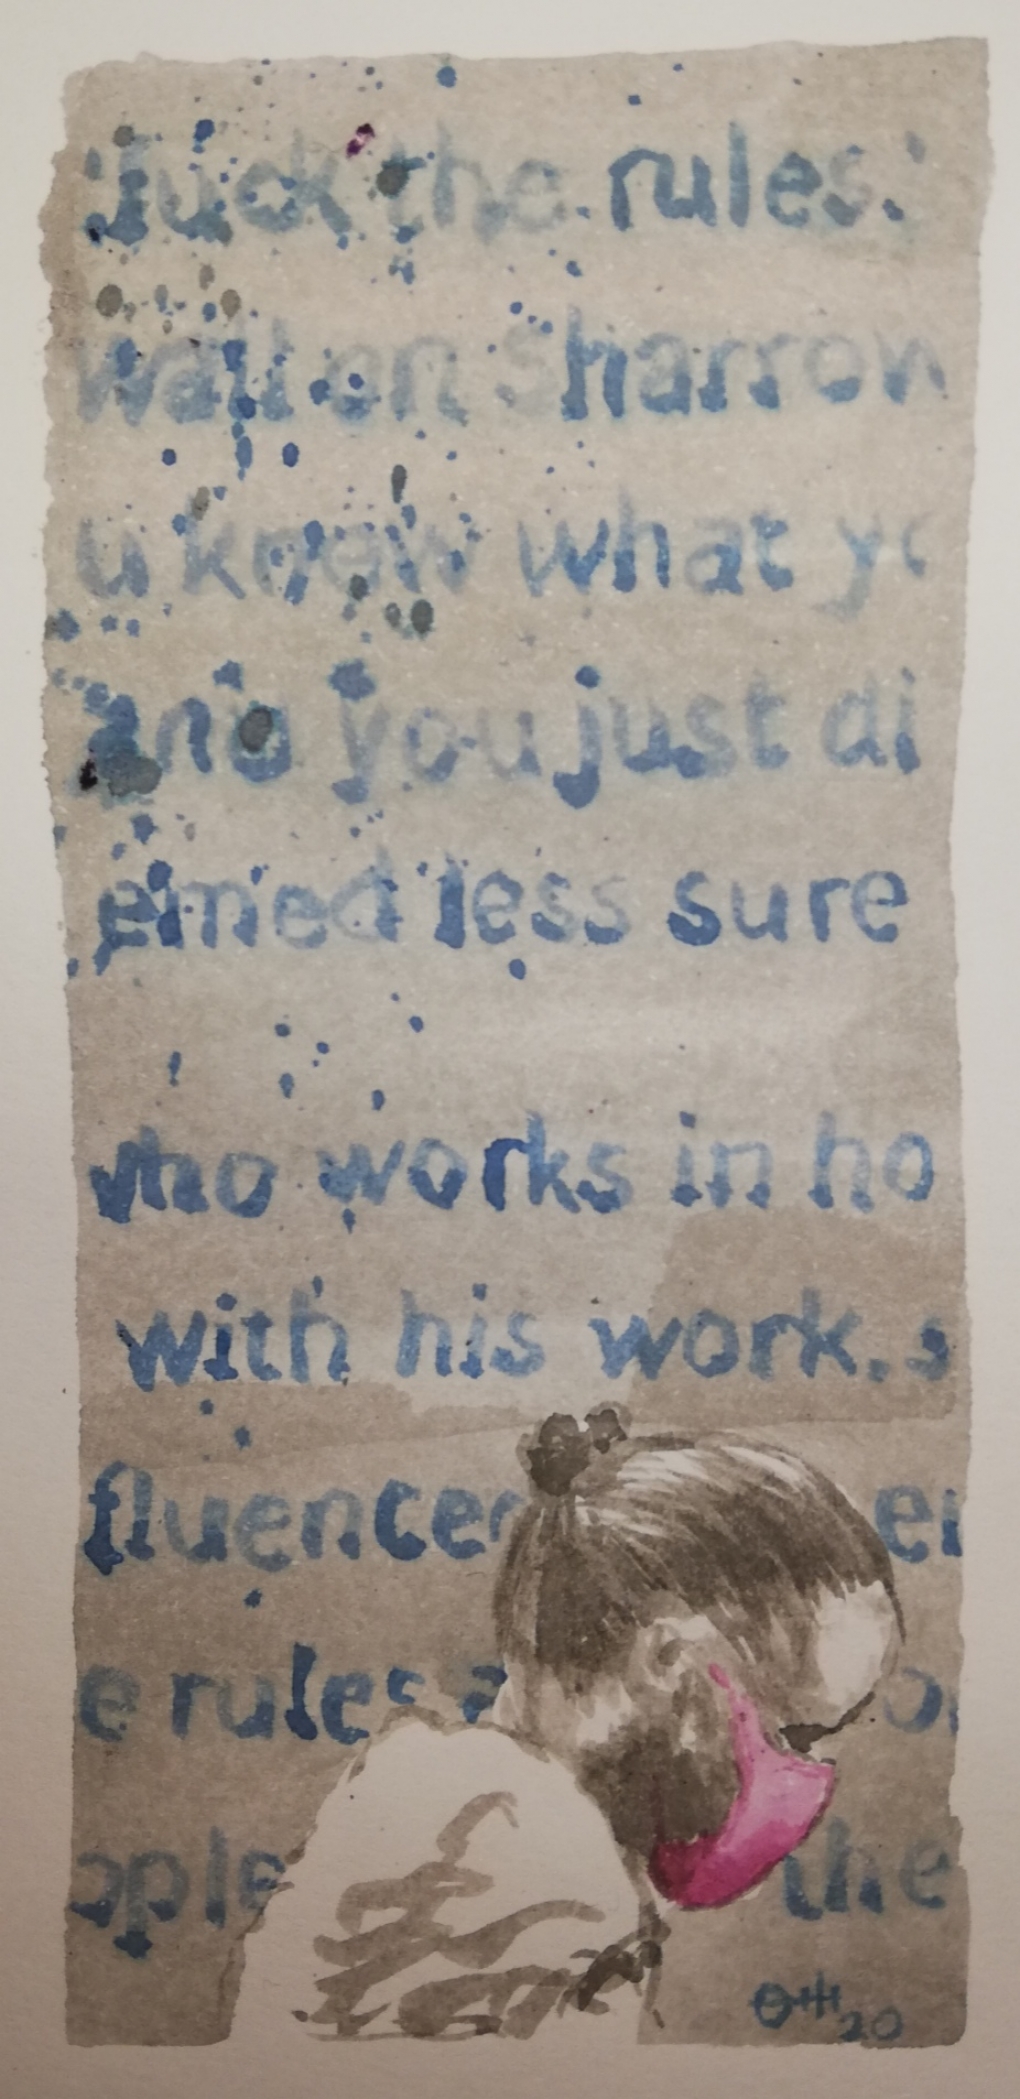 'fuck the rules.'
wall on Sharrow
u know what yo
and you just di
emed less sure
who works in ho
with his work. s
fluencer er
e rules a or
ople the
20